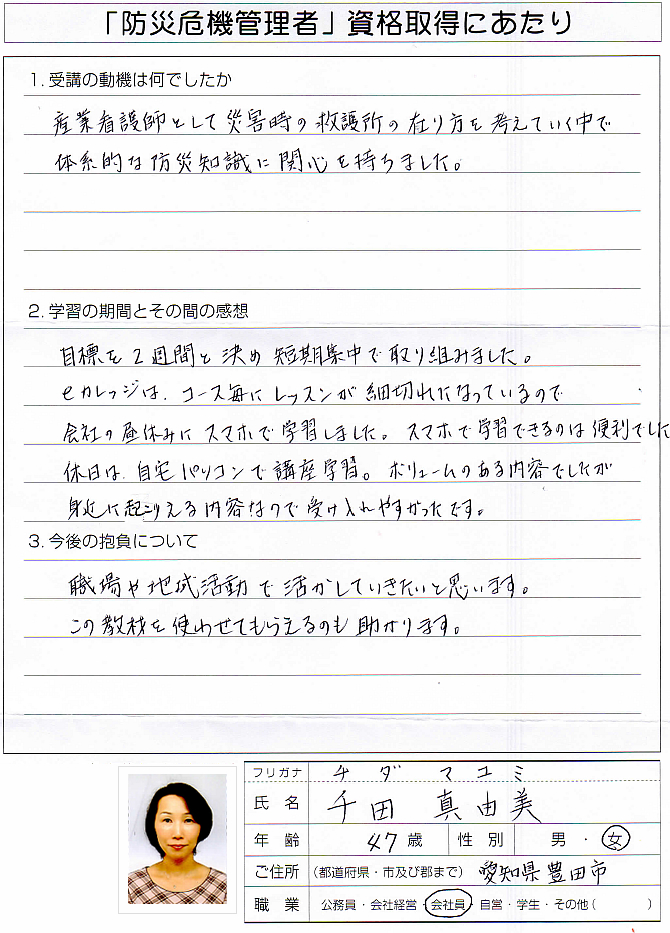 「防災危機管理者」資格取得にあたり
1. 受講の動機は何でしたか
産業看護師として災害時の救護所の在り方を考えていく中で
体系的な防災知識に関心を持ちました。
2. 学習の期間とその間の感想
目標を2週間と決め短期集中で取り組みました。
eカレッジは、コース毎にレッスンが細切れになっているので
会社の昼休みにスマホで学習しました。スマホで学習できるのは便利でした
休日は、自宅パソコンで講座学習。ボリュームのある内容でしたが
身近に起こりえる内容なので受け入れやすかったです。
3. 今後の抱負について
職場や地域活動で活かしていきたいと思います。
この教材を使わせてもらえるのも助かります。
フリガナ チダ マユミ
氏名 千田 真由美
年齢 47歳 性別 男・女
ご住所 (都道府県・市及び郡まで) 愛知県豊田市
職業 公務員・会社経営・会社員・自営・学生・その他( )